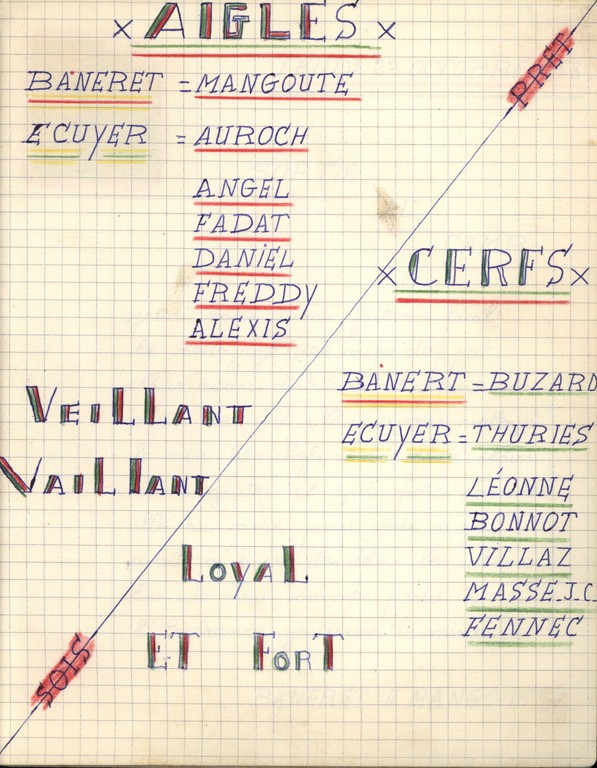 x AIGLES x
BANERET = MANGOUTE
ECUYER = AUROCH
ANGEL
FADAT
DANiEL
FREDDY
ALEXIS
VEiLLANT
VAiLLANT
SOIS
PRET
x CERFS x
BANERT = BUZARD
ECUYER = THURIES
LÉONNE
BONNOT
VILLAZ
MASSE.J.C.
FENNEC
LoyaL
ET ForT